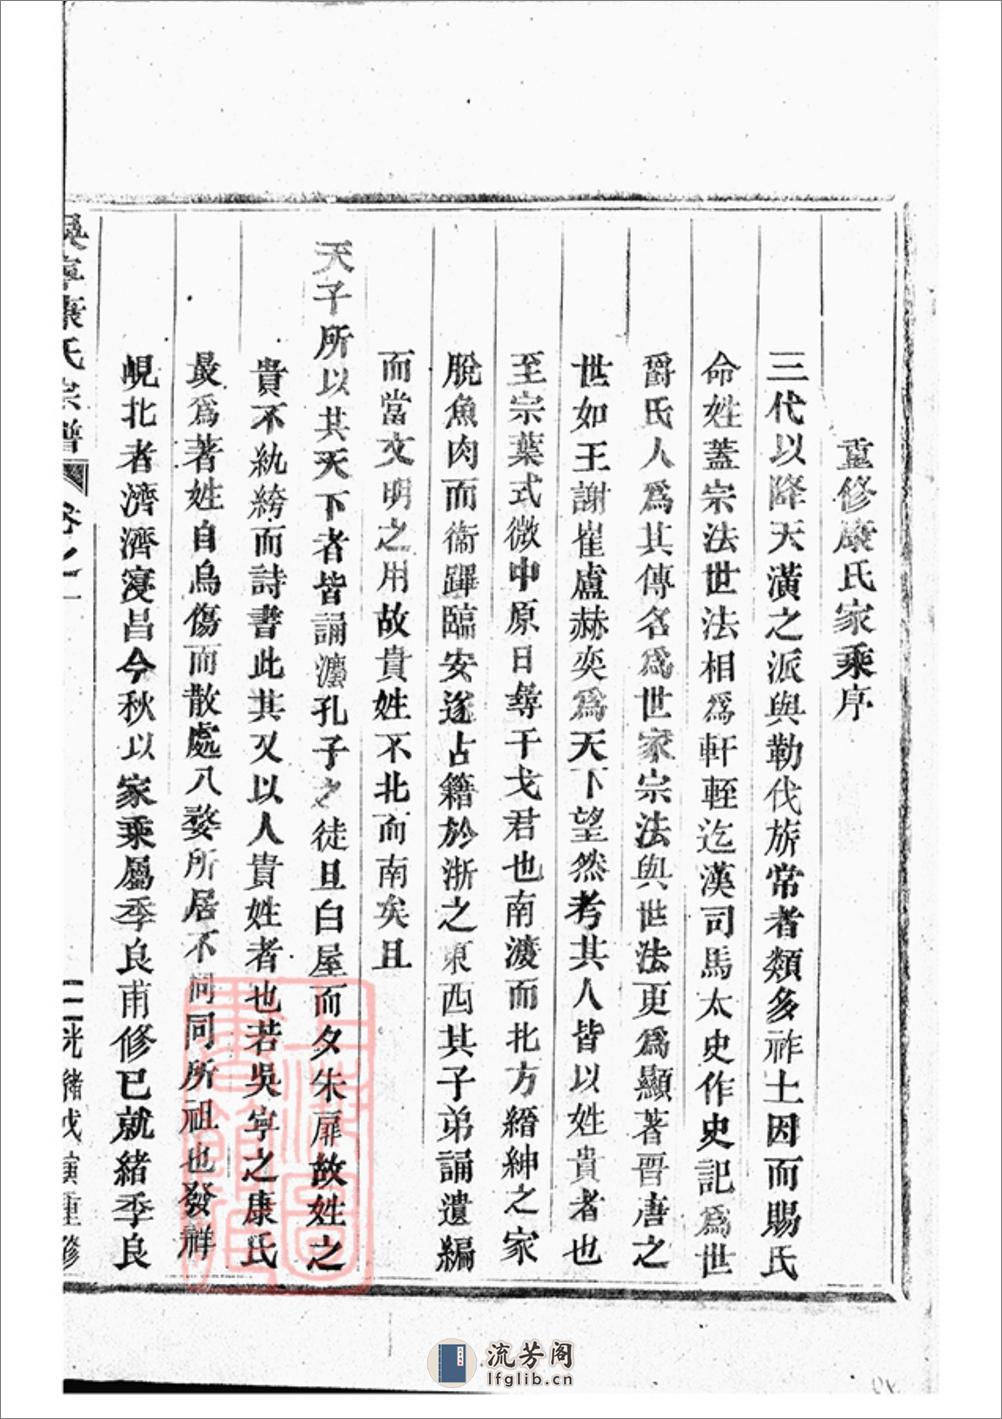 重修康氏家乘序
三代以降天潢之派與勒伐旂常者類多祚土因而賜氏
命姓蓋宗法世法相爲軒輊迄漢司馬太史作史記爲世
爵氏人爲其傳名爲世家宗法與世法更爲顯著晋唐之
世如王謝崔盧赫奕爲天下望然考其人皆以姓貴者也
至宗葉式微中原日尋干戈君也南渡而北方縉紳之家
脫魚肉而衞蹕臨安遂占籍於浙之東西其子弟誦遺編
而當文明之用故貴姓不北而南矣且
天子所以其天下者皆誦瀍孔子之徒旦白屋而夕朱扉故姓之
貴不紈絝而詩書此其又以人貴姓者也若吳寧之康氏
最爲著姓自烏傷而散處八婺所居不同同所祖也發祥
峴北者濟濟寖昌今秋以家乘屬季良甫修已就緒季良
吳寧康氏宗譜 卷之一 光緒戊寅重修
上海圖書館藏
流芳阁
lfglib.cn